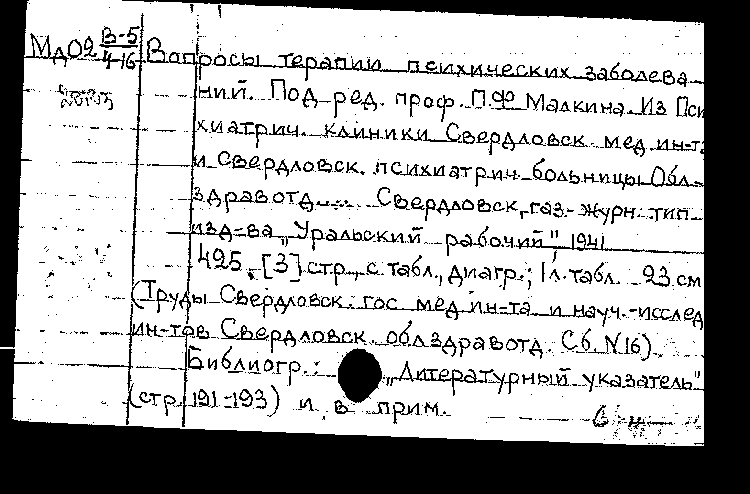 Мд02 В-5/4-16 Вопросы терапии психических заболева-
ний. Под ред. проф. П.Ф Малкина. Из Пси
хиатрич. клиники Свердловск. мед. ин-та
и Свердловск. психиатрич. больницы Обл-
здравотд.... Свердловск, газ.-журн. тип.
изд-ва „Уральский рабочий", 1941
425, [3] стр., с табл., диагр.; 1 л. табл. 23 см
(Труды Свердловск. гос мед ин-та и науч.-исслед
ин-тов Свердловск. облздравотд. Сб. N 16).
Библиогр.: „Литературный указатель"
(стр. 191-193) и в прим.